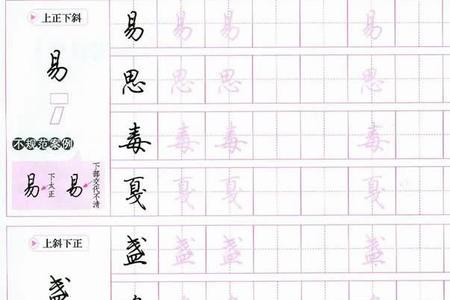 上正下斜
易
不规范案例
易 下太正 易 下部交代不清
易 易 易 易
思 思 思 思
毒 毒 毒 毒
戛 戛 戛 戛
上斜下正
盏
盏 盏 盏 盏